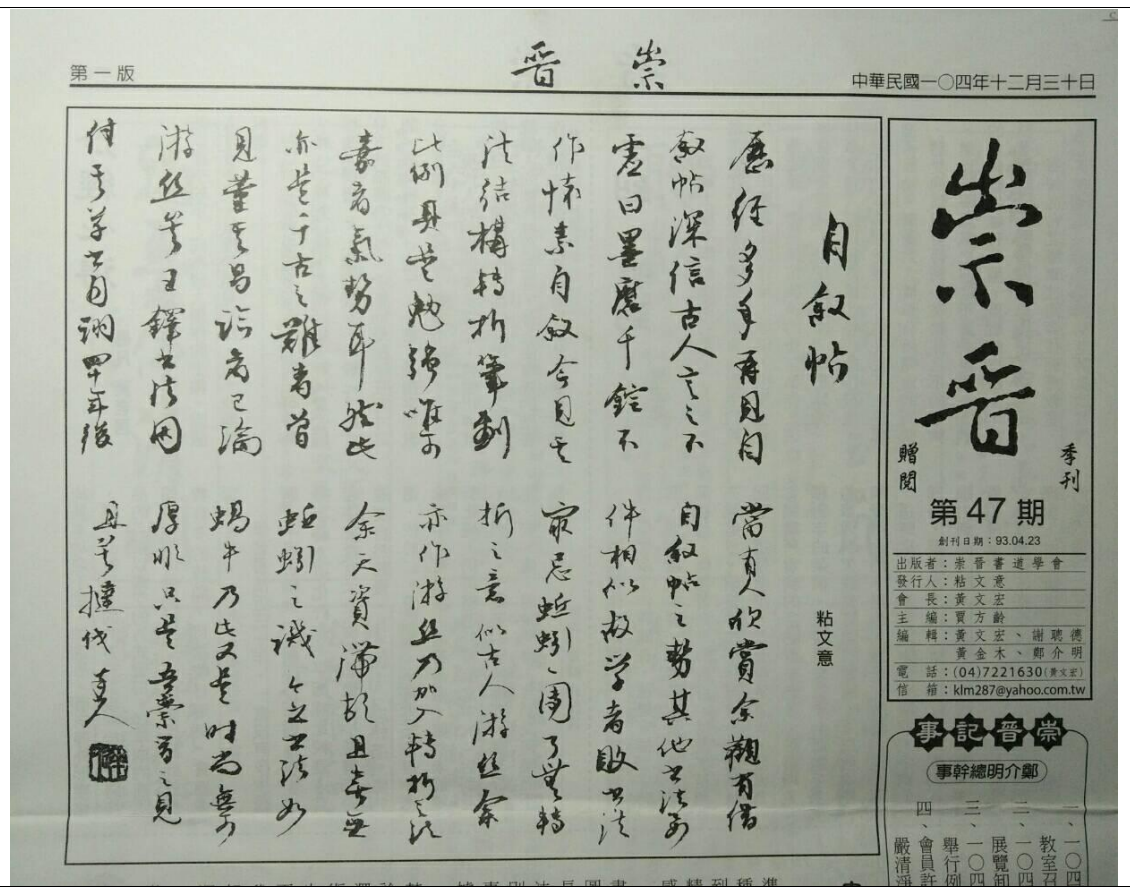 第一版
崇晉
中華民國一〇四年十二月三十日
崇晉
季刊
贈閱
第 47 期
創刊日期：93.04.23
出版者：崇晉書道學會
發行人：粘文意
會　長：黃文宏
主　編：賈方齡
編　輯：黃文宏、謝聰德
黃金木、鄭介明
電　話：(04)7221630(黃文宏)
信　箱：klm287@yahoo.com.tw
崇晉記事
鄭介明總幹事
一、一〇四
教室召
二、一〇四
展覽卸
三、一〇四
舉行例
四、會員許
嚴清淨
自敘帖
粘文意
歷經多年再見自
敘帖深信古人言之不
虛曰墨磨千錠不
作懷素自敘今見其
法結構轉折筆劃
比例且是勉強唯可
喜者氣勢耳然此
亦是千古之難者昔
見董其昌臨者已淪
游絲等王鐸書法用
付其草書自詡四十年後
當有人欣賞余觀有借
自敘帖之勢其他書法
件相似故学者敗書法
家忌蚯蚓之團了無轉
折之意似古人游絲余
亦作游絲乃加入轉折之法
余天資滯 且喜無
蚯蚓之譏今之書法如
蝸牛乃此又是时尚無可
厚非只是吾崇晉之見
且等撻伐